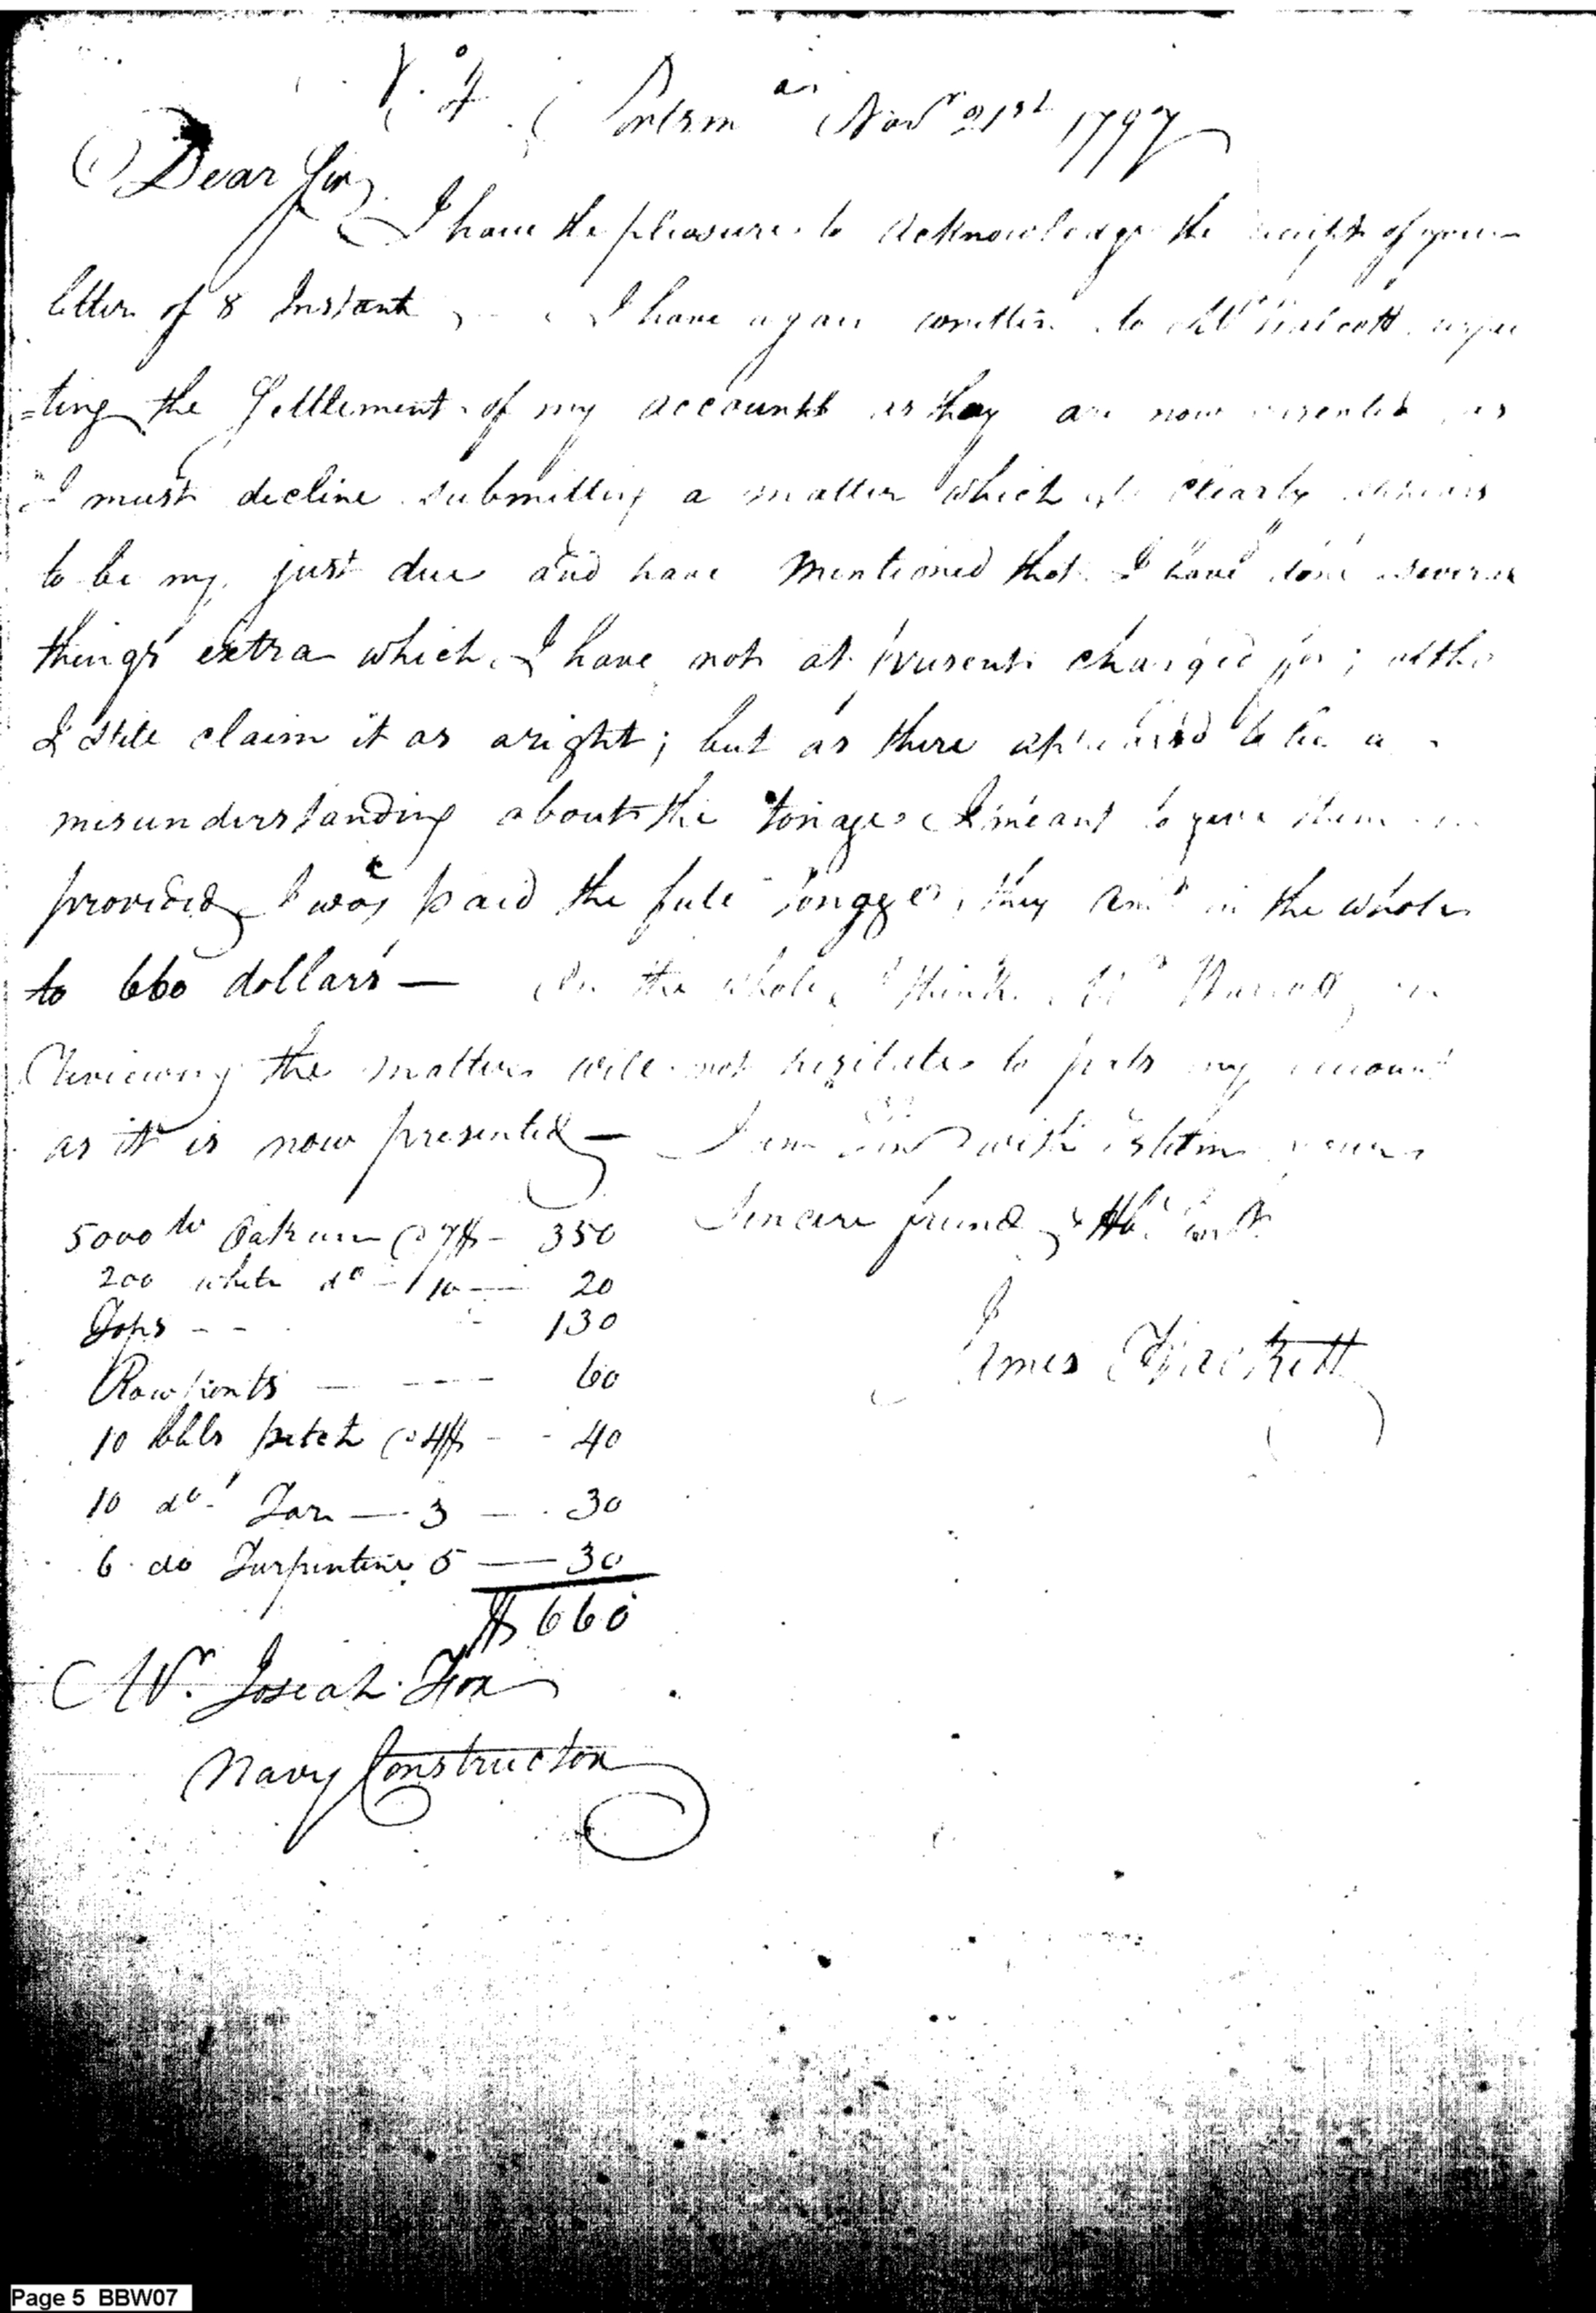 Portsm Novr 21st 1797
Dear Sir
I have the pleasure to acknowledge the receipt of your
letter of 8 Instant, I have again written to Mr
=ting the Settlement of my accounts as they are now presented, as
I must decline submitting a matter which so clearly appears
to be my just due and have mentioned that I have done several
things extra which I have not at present charged for; altho
I still claim it as a right; but as there appeared to be a
misunderstanding about the tonage I meant to give them in
provided I was paid the full tonage, they amt in the whole
to 660 dollars — On the whole I think Mr on
Reviewing the matter will not hesitate to pass my account
as it is now presented — I am Sir with esteem your
Sincere friend & Hbl Servt
James Hackett
5000 lb Oakum @ 7$ - 350
200 white do - 10 — 20
Tops - - 130
Row ports — - - - 60
10 bbls pitch @ 4$ - - 40
10 do Tar — 3 — 30
6 do Turpintine 5 — 30
$ 660
Mr. Josiah Fox
Navy Constructor
Page 5 BBW07